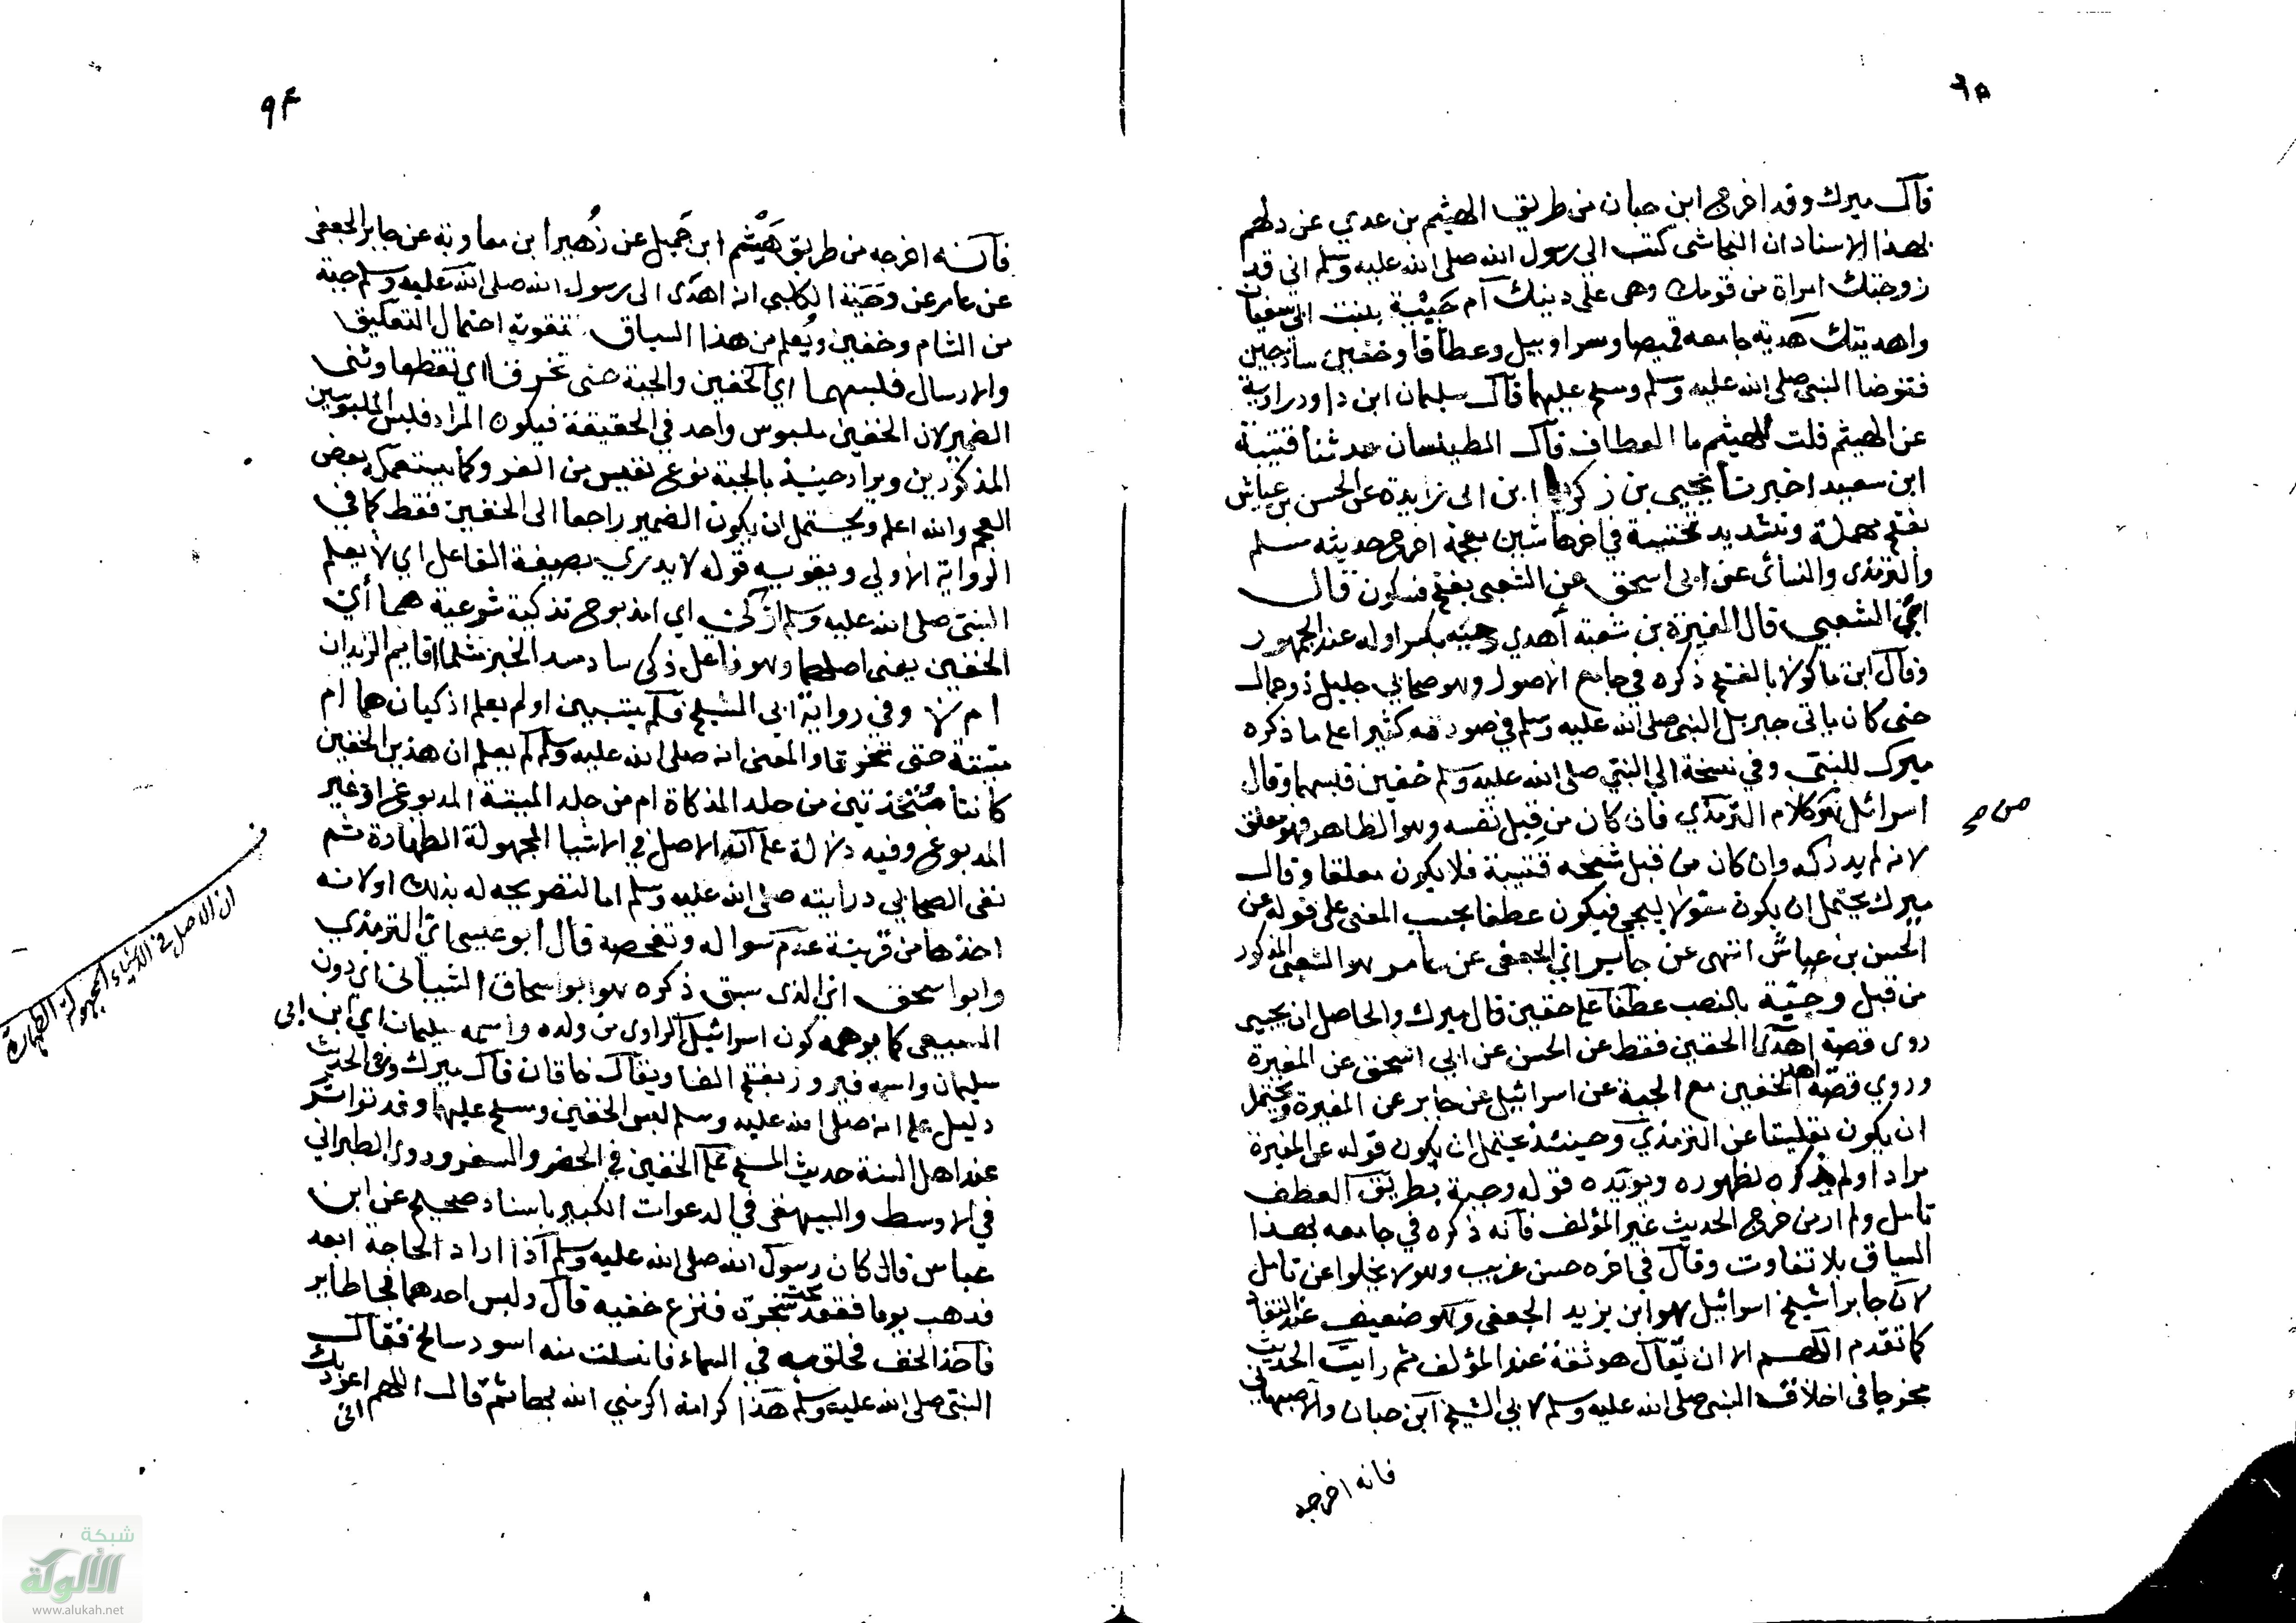 قال ميرك وقد اخرج ابن حبان من طريق الهيثم بن عدي عن دلهم
بهذا الاسناد ان النجاشى كتب الى رسول الله صلى الله عليه وسلم انى قد
زوجتك امراة من قومك وهى على دينك ام حبيبة بنت ابي سفيان
واهديتك هدية جامعه قميصا وسراويل وعطافا وخفين ساذجين
فتوضا النبي صلى الله عليه وسلم ومسح عليهما قال سليمان ابن داود راويه
عن الهيثم قلت للهيثم ما العطاف قال الطيلسان حدثنا قتيبة
ابن سعيد اخبرنا يحيى بن زكريا ابن ابى زايدة عن الحسن بن عياش
بفتح مهملة وتشديد تحتية في اخرها شين معجمة اخرج حديثه مسلم
والترمذى والنسائى عن ابى اسحق عن الشعبى بفتح فسكون قال
اي الشعبي قال المغيرة بن شعبة أهدي دحية بكسر اوله عند الجمهور
وقال ابن ماكولا بالفتح ذكره في جامع الاصول وهو صحابي جليل ذو جمال
حتى كان ياتى جبريل النبي صلى الله عليه وسلم في صورته كثيرا على ما ذكره
ميرك للنبي وفي نسخة الى النبي صلى الله عليه وسلم خفين فلبسهما وقال
اسرائيل هو كلام الترمذي فان كان من قبل نفسه وهو الظاهر فهو معلق
لانه لم يدركه وان كان من قبل شيخه قتيبة فلا يكون معلقا وقال
ميرك يحتمل ان يكون مقولا ليحيى فيكون عطفا بحسب المعنى على قوله عن
الحسن بن عياش انتهى عن جابر اي الجعفى عن عامر هو الشعبى المذكور
من قبل وجبة بالنصب عطفا على خفين قال ميرك والحاصل ان يحيى
روى قصة اهدى الخفين فقط عن الحسن عن ابي اسحق عن المغيرة
وروي قصة اهدى الخفين مع الجبة عن اسرائيل عن جابر عن المغيرة ويحتمل
ان يكون تعليقا عن الترمذي وحينئذ يحتمل ان يكون قوله عن المغيرة
مرادا ولم يذكره لظهوره ويويده قوله وجبة بطريق العطف
تامل ولم ار من خرج الحديث غير المؤلف فانه ذكره في جامعه بهذا
السياق بلا تفاوت وقال في اخره حسن غريب وهو لا يخلوا عن تامل
لان جابرا شيخ اسرائيل هو ابن يزيد الجعفى وهو ضعيف عند النقاد
كما تقدم اللهم الا ان يقال هو ثقة عند المؤلف ثم رايت الحديث
مخرجا فى اخلاق النبي صلى الله عليه وسلم لابي الشيخ ابن حبان والاصبهاني
فانه اخرجه
فانه اخرجه من طريق هيثم ابن جميل عن زهير ابن معاوية عن جابر الجعفى
عن عامر عن دحية الكلبى انه اهدى الى رسول الله صلى الله عليه وسلم جبة
من الشام وخفين ويعلم من هذا السياق تقوية احتمال التعليق
والارسال فلبسهما اي الخفين والجبة حتى تخرقا اي تقطعا وثنى
الضمير لان الخفين ملبوس واحد في الحقيقة فيكون المراد فلبس الملبوسين
المذكورين ويراد حينئذ بالجبة نوع نفيس من الفرو كما يستعمله بعض
العجم والله اعلم ويحتمل ان يكون الضمير راجعا الى الخفين فقط كما في
الرواية الاولى ويقويه قوله لا يدري بصيغة الفاعل اي لا يعلم
النبي صلى الله عليه وسلم اذكى اي امذبوح تذكية شرعية هما أي
الخفين يعنى اصلهما وهو فاعل ذكى ساد مسد الخبر مثل ما اقايم الزيدان
ام لا وفي رواية ابي الشيخ فلم يتبين او لم يعلم اذكيان هما ام
ميتة حتى تخرقا والمعنى انه صلى الله عليه وسلم لم يعلم ان هذين الخفين
كانتا متخذتين من جلد المذكاة ام من جلد الميتة المدبوغ او غير
المدبوغ وفيه دلالة على ان الاصل في الاشيا المجهولة الطهارة ثم
نفى الصحابي درايته صلى الله عليه وسلم اما لتصريحه له بذلك او لانه
اخذها من قرينة عدم سواله وتفحصه قال ابو عيسى اي الترمذي
وابو اسحق اي الذى سبق ذكره هو ابو اسحاق الشيبانى اي دون
السبيعى كما يوهمه كون اسرائيل الراوى من ولده واسمه سليمان اي ابن ابى
سليمان واسمه فيروز بفتح الفا ويقال خاقان قال ميرك وفى الحديث
دليل على انه صلى الله عليه وسلم لبس الخفين ومسح عليهما وقد تواتر
عند اهل السنة حديث المسح على الخفين في الحضر والسفر وروى الطبراني
في الاوسط والبيهقى في الدعوات الكبير باسناد صحيح عن ابن
عباس قال كان رسول الله صلى الله عليه وسلم اذا اراد الحاجة ابعد
فذهب يوما فقعد تحت شجرة فنزع خفيه قال ولبس احدهما فجا طاير
فاخذ الخف فحلق به في السماء فانسلت منه اسود سالخ فقال
النبي صلى الله عليه وسلم هذا كرامة اكرمني الله بها ثم قال اللهم انى اعوذ بك
ان الاصل في الاشياء المجهولة الطهارة
۹۴
صن صح
شبكة
الألوكة
www.alukah.net